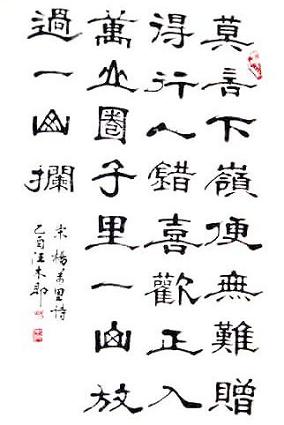 莫言下嶺便無難贈
得行人錯喜歡正入
萬山圈子里一山放
過一山攔
宋楊萬里詩
乙酉汪木